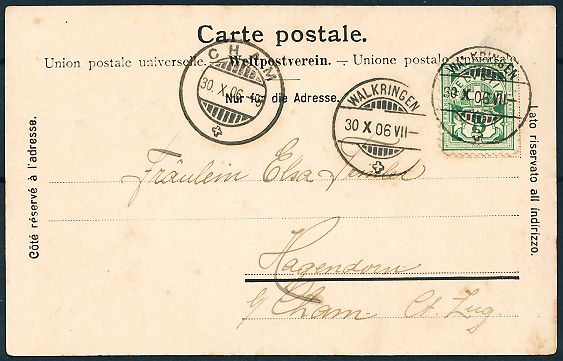 Carte postale.
Union postale universelle. — Weltpostverein. — Unione postale
Nur für die Adresse.
CHAM
30. X. 06
WALKRINGEN
30 X 06 VII —
WALKRINGEN
30 X 06 VII —
5
Côté réservé à l'adresse.
Lato riservato all indirizzo.
Fräulein Elsa
Hagendorn
b/ Cham Ct. Zug.